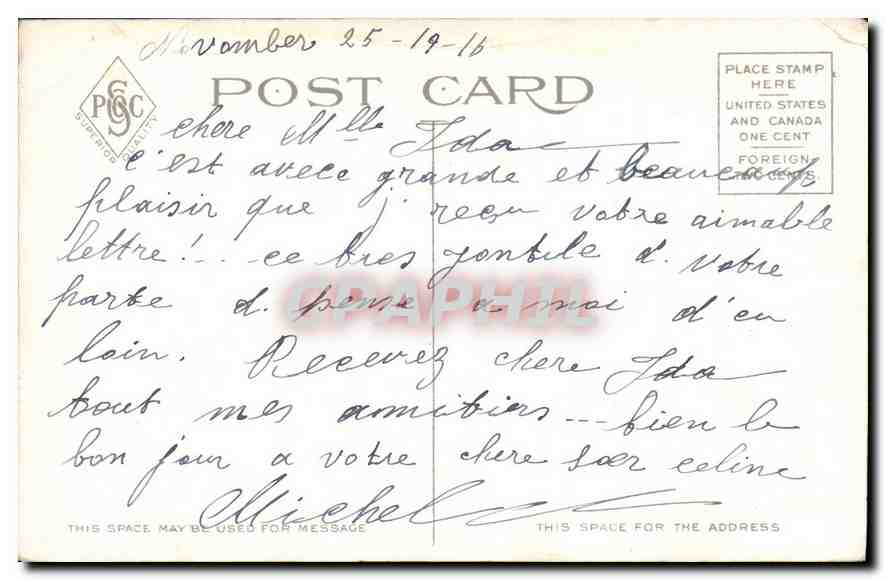 Novamber 25-19-16
POST CARD
PSC
SUPERIOR QUALITY
PLACE STAMP
HERE
UNITED STATES
AND CANADA
ONE CENT
FOREIGN
TWO CENTS.
chere Mlle Ida
c'est avecc grande et beaucaup
plaisir que j reçu votre aimable
lettre!.. ce tres jontile d. votre
parte d. pense a moi d'en
loin. Recevez chere Ida
tout mes amitiers --- bien le
bon jour a votre chere sœr celine
Michel
CPAPHIL
THIS SPACE MAY BE USED FOR MESSAGE
THIS SPACE FOR THE ADDRESS